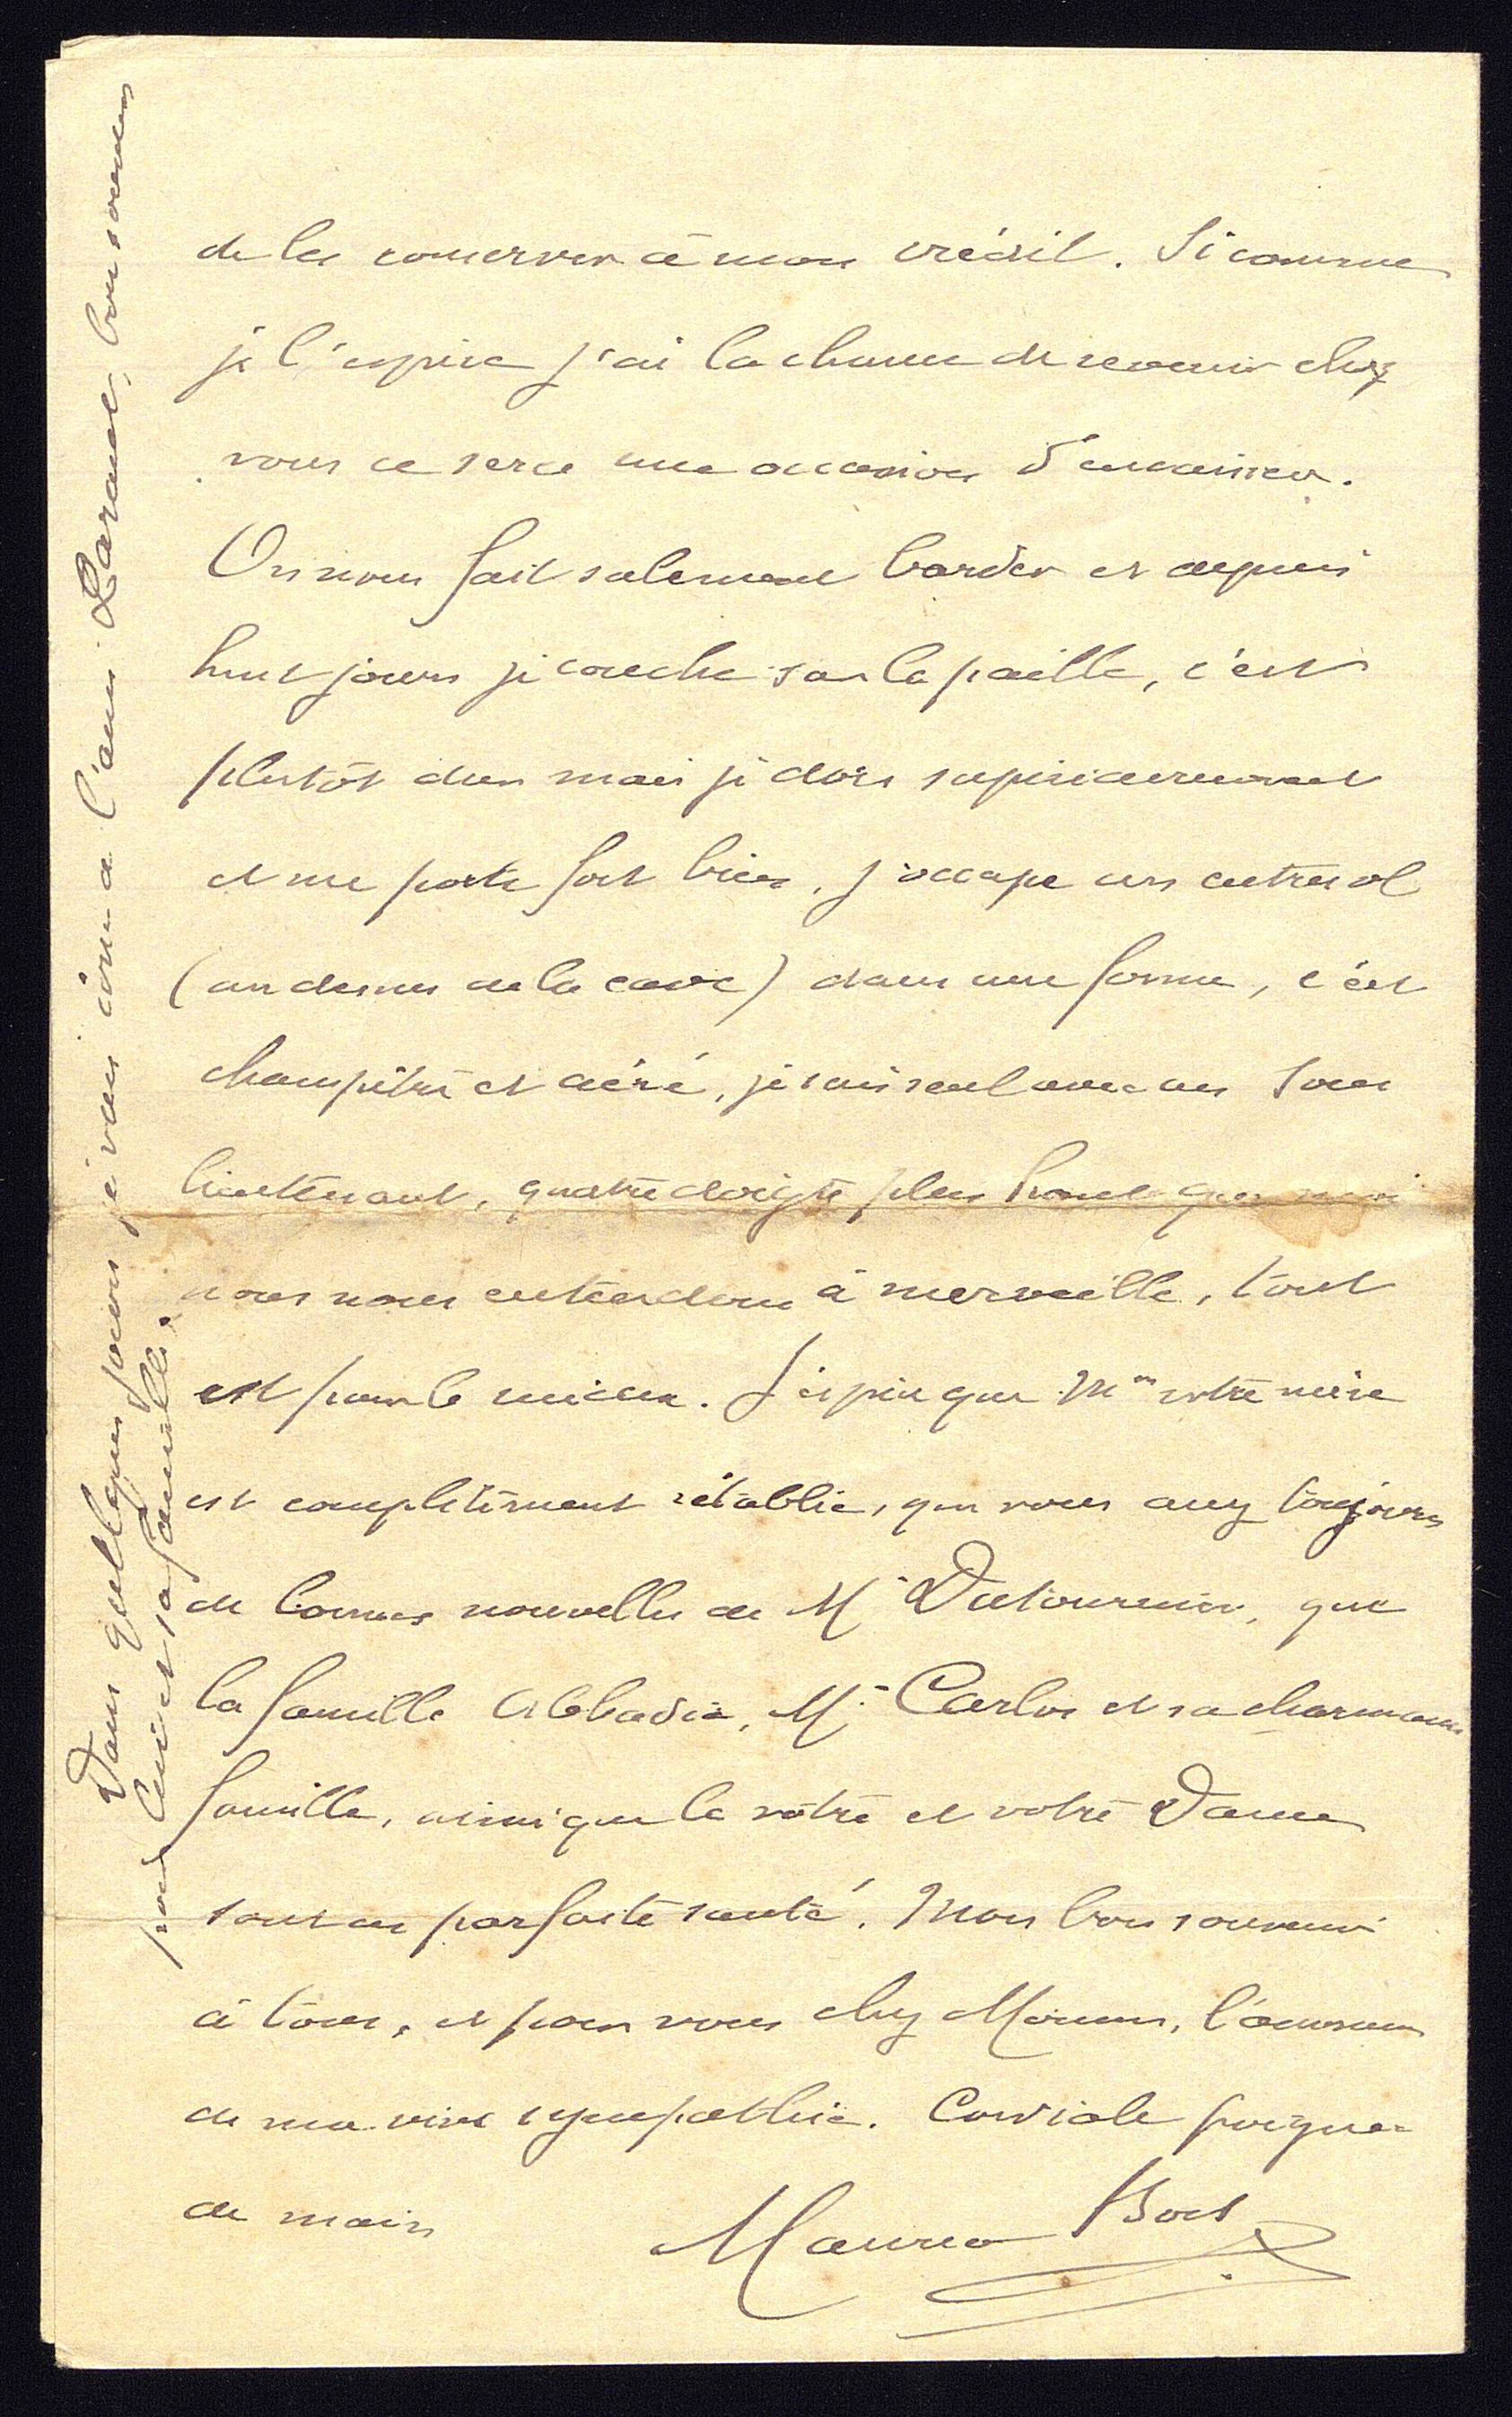 de les conserver à mon crédit. Si comme
je l'espère j'ai la chance de revenir chez
vous ce sera une occasion d'encaisser.
On nous fait salement barder et depuis
huit jours je couche sur la paille, c'est
plutôt dur mais je dors supérieurement
et me porte fort bien, j'occupe un entresol
(au dessus de la cave) dans une ferme, c'est
champêtre et aéré, je suis seul avec un sous
lieutenant, quatre doigts plus haut que moi
nous nous entendons à merveille, tout
est pour le mieux. J'espère que Mme votre mère
est complètement rétablie, que vous avez toujours
de bonnes nouvelles de Mr Dutournier, que
la famille Abbadie, Mr Carlos et sa charmante
famille, ainsi que la vôtre et votre Dame
sont en parfaite santé. Mon bon souvenir
à tous, et pour vous cher Monsieur, l'assurance
de ma vive sympathie. Cordiale poignée
de main
Maurice
Dans quelques jours je vais écrire à l'ami bon souvenir
pour lui et sa famille.